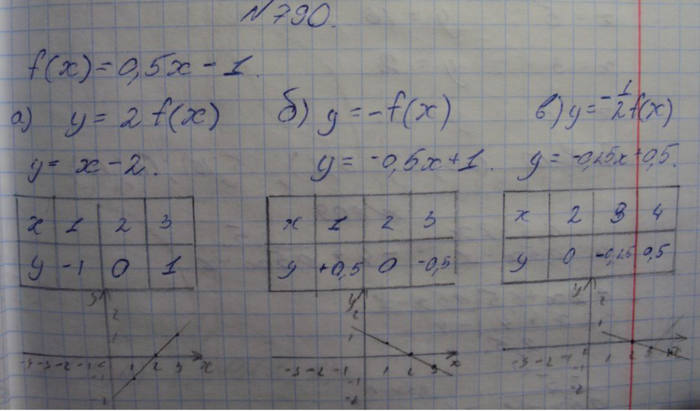 №790.
f(x)=0,5x-1.
а) y=2f(x) б) y=-f(x) в) y=-1/2f(x)
y=x-2. y=-0,5x+1. y=-0,25x+0,5.
x 1 2 3 x 1 2 3 x 2 3 4
y -1 0 1 y +0,5 0 -0,5 y 0 -0,25 0,5
y y y
2 2
1 1 1
1 2 3 x 1 2 3 x 1 2 3 x
-1 -1 -1
-2 -2 -2